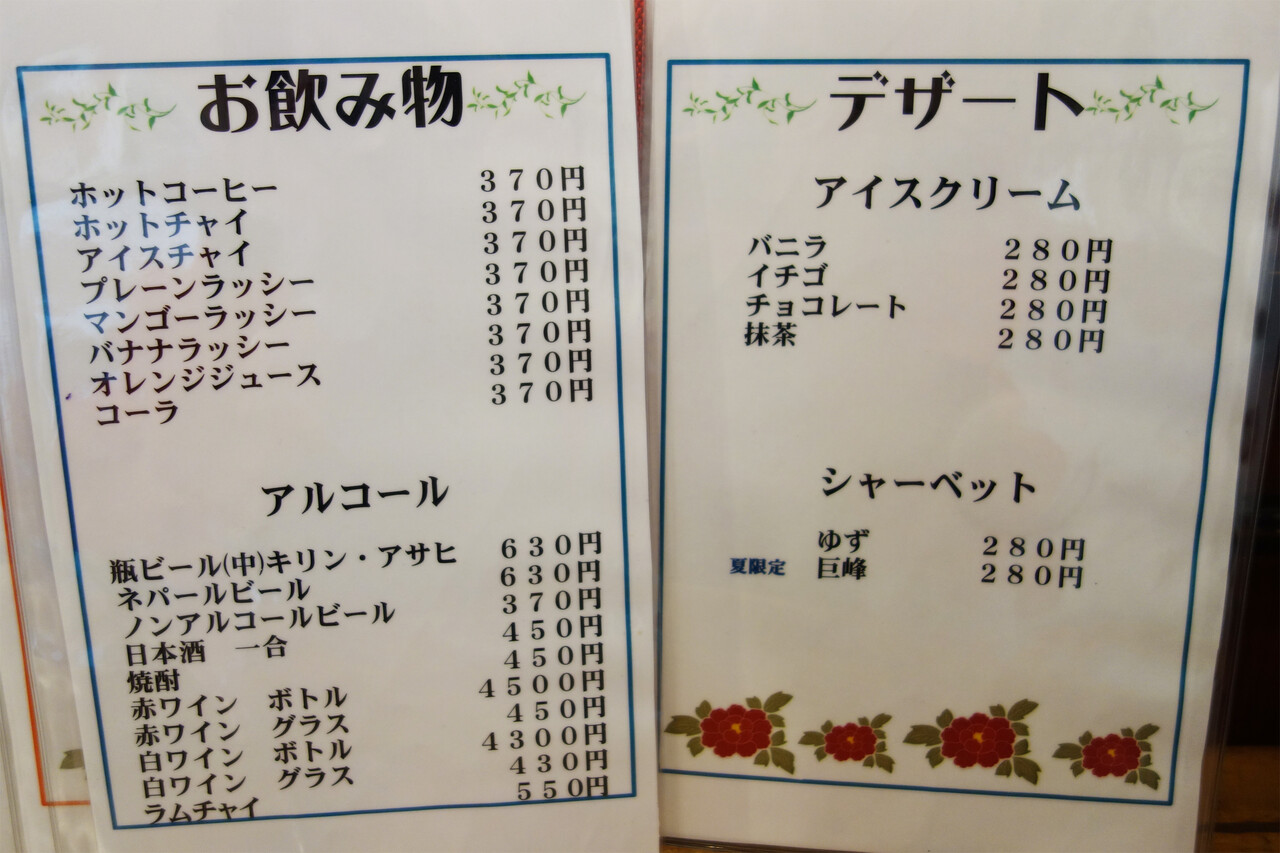 お飲み物
ホットコーヒー ３７０円
ホットチャイ ３７０円
アイスチャイ ３７０円
プレーンラッシー ３７０円
マンゴーラッシー ３７０円
バナナラッシー ３７０円
オレンジジュース ３７０円
コーラ ３７０円
アルコール
瓶ビール(中)キリン・アサヒ ６３０円
ネパールビール ６３０円
ノンアルコールビール ３７０円
日本酒　一合 ４５０円
焼酎 ４５０円
赤ワイン　ボトル ４５００円
赤ワイン　グラス ４５０円
白ワイン　ボトル ４３００円
白ワイン　グラス ４３０円
ラムチャイ ５５０円
デザート
アイスクリーム
バニラ ２８０円
イチゴ ２８０円
チョコレート ２８０円
抹茶 ２８０円
シャーベット
ゆず ２８０円
夏限定 巨峰 ２８０円